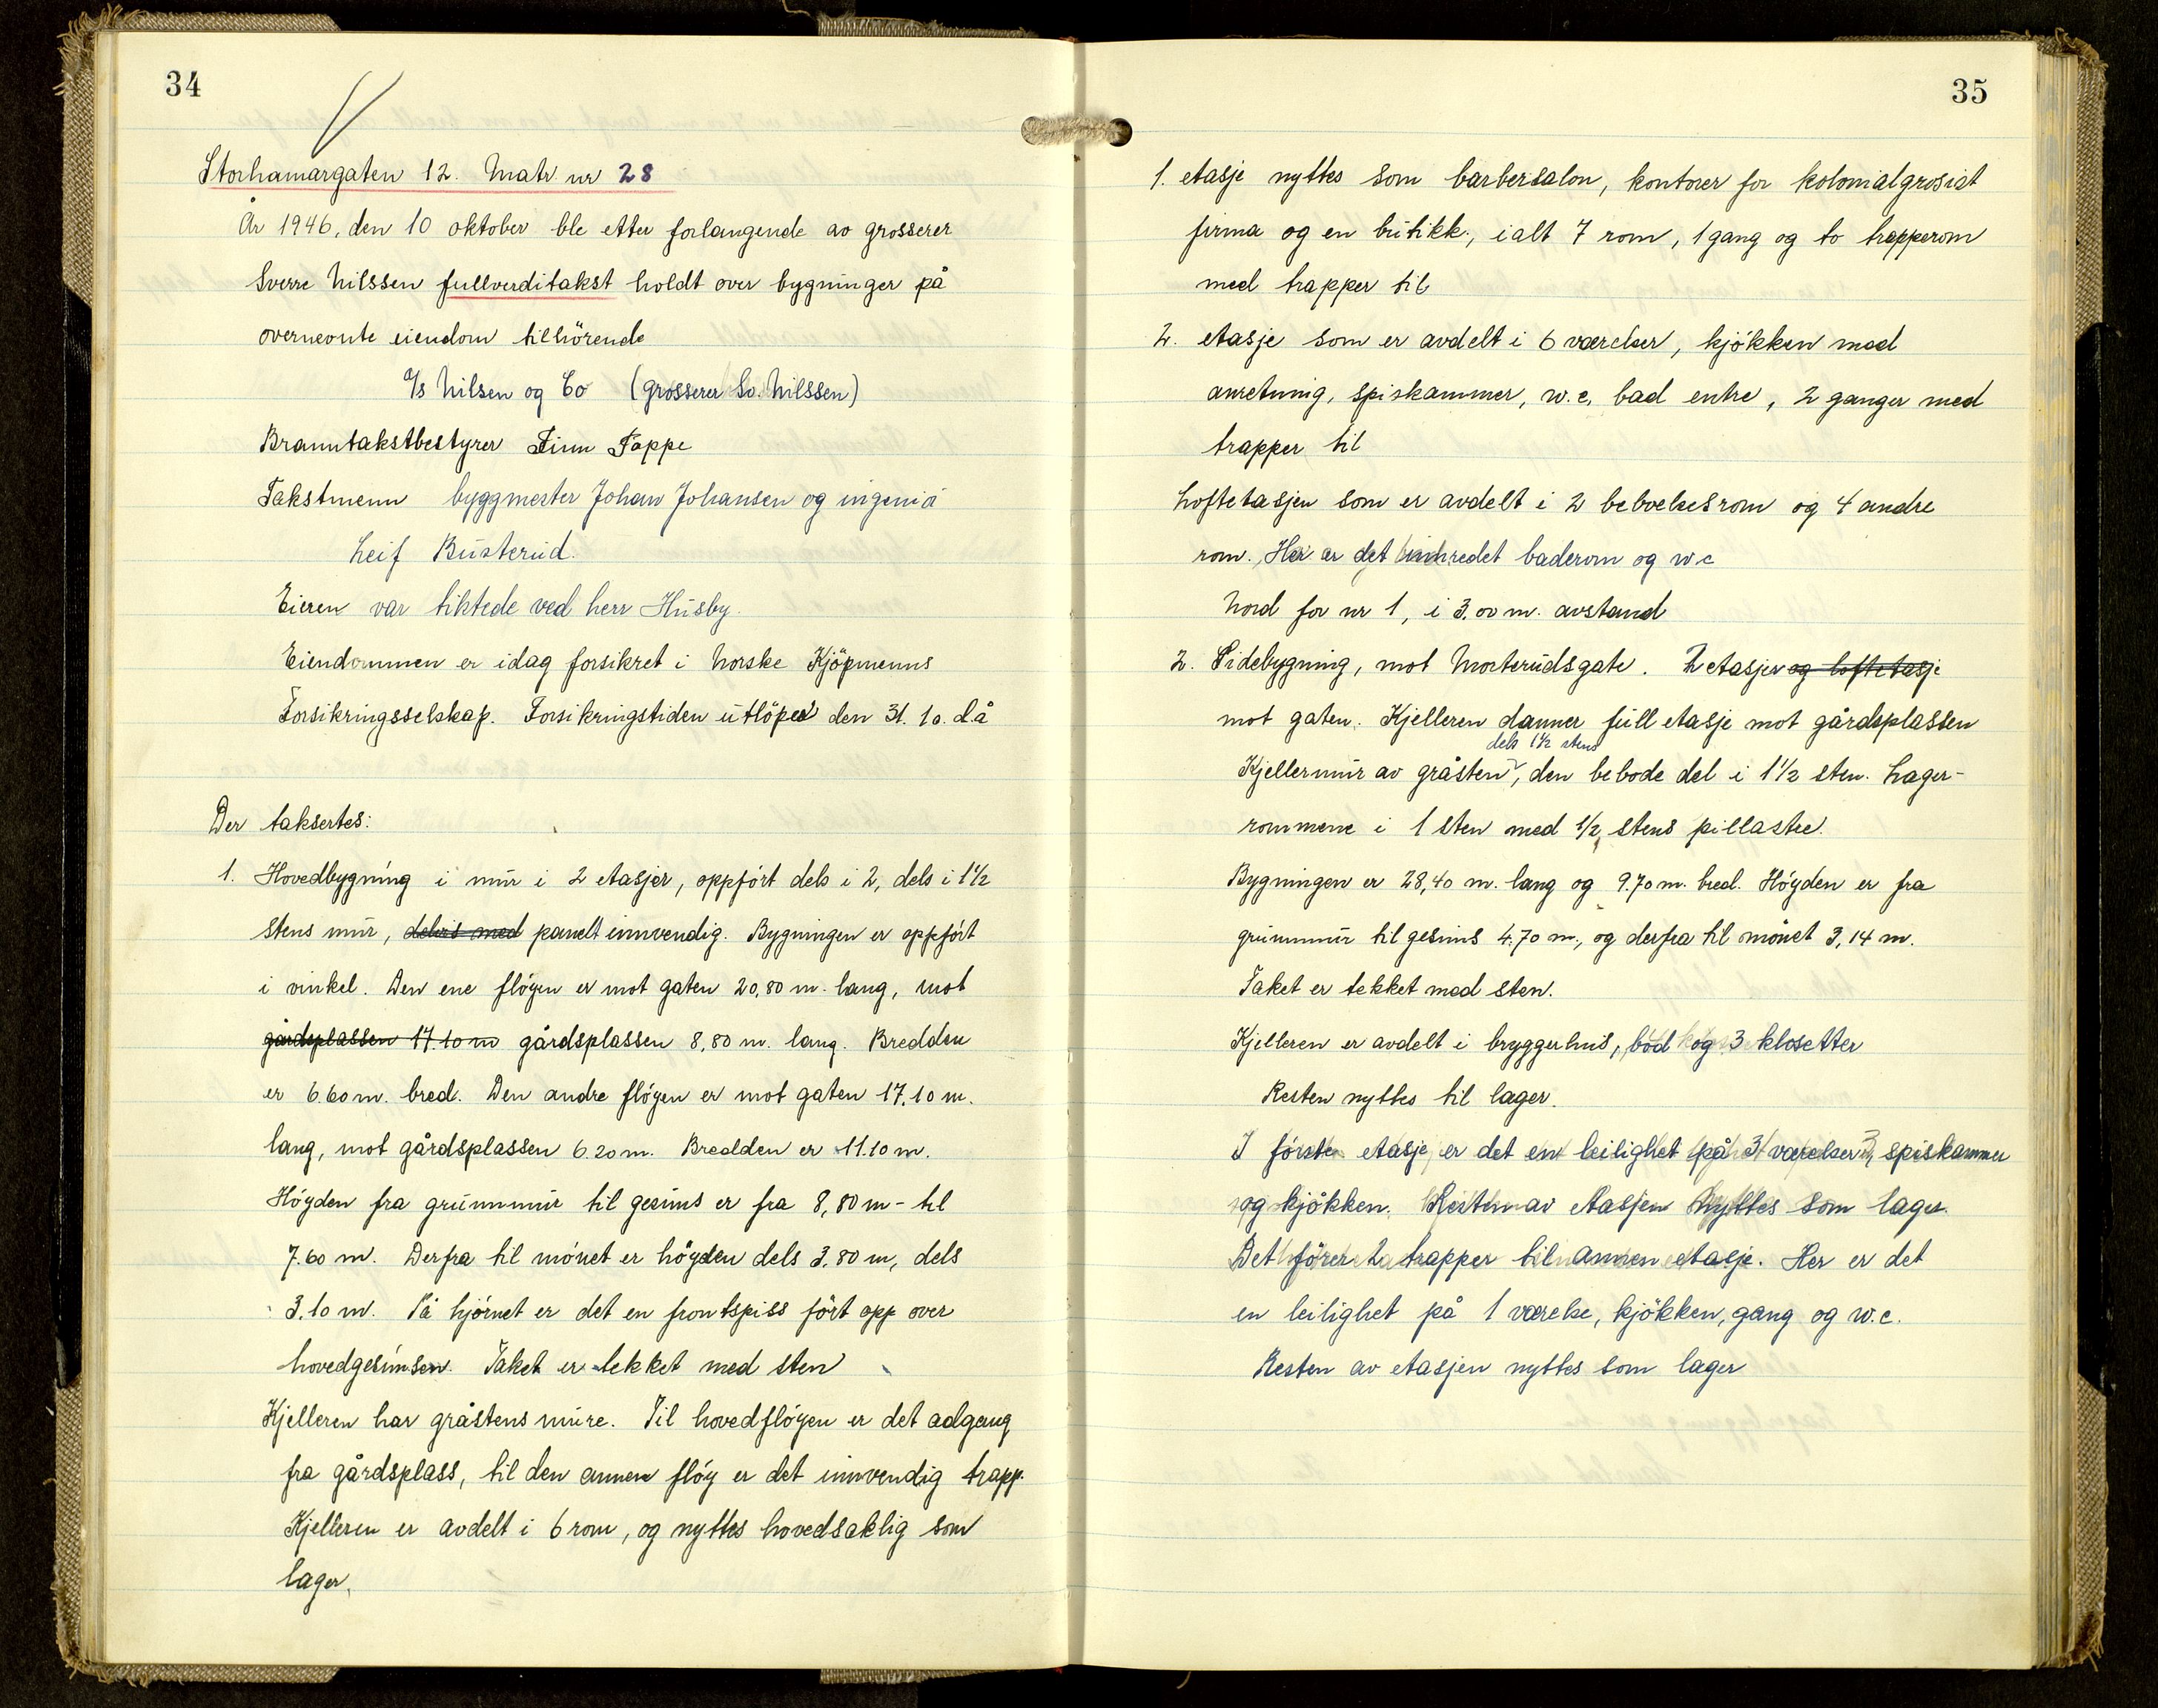 34
Storhamargaten 12. Matr. nr 28
År 1946, den 10 oktober ble etter forlangende av grosserer
Sverre Nilssen fullverditakst holdt over bygninger på
overnevnte eiendom tilhörende
A/s Nilsen og Co (grosserer Sv. Nilssen)
Branntakstbestyrer Finn Poppe
Takstmenn byggmester Johan Johansen og ingeniö
Leif Busterud.
Eieren var tiltede ved herr Husby.
Eiendommen er idag forsikret i Norske Kjöpmenns
Forsikringsselskap. Forsikringstiden utlöper den 31. 10. d.å
Der taksertes:
1. Hovedbygning i mur i 2 etasjer, oppfört dels i 2, dels i 1 1/2
stens mur, delvis med panelt innvendig. Bygningen er oppfört
i vinkel. Den ene flöyen er mot gaten 20,80 m. lang, mot
gårdsplassen 17.10 m gårdsplassen 8,80 m. lang. Bredden
er 6.60 m. bred. Den andre flöyen er mot gaten 17.10 m.
lang, mot gårdsplassen 6.20 m. Bredden er 11.10 m.
Höyden fra grunnmur til gesims er fra 8,80 m - til
7.60 m. Derfra til mönet er höyden dels 3.80 m, dels
3.10 m. På hjörnet er det en frontspiss fört opp over
hovedgesimsen. Taket er tekket med sten
Kjelleren har gråstens mure. Til hovedflöyen er det adgang
fra gårdsplass, til den annen flöy er det innvendig trapp.
Kjelleren er avdelt i 6 rom, og nyttes hovedsaklig som
lager.
35
1. etasje nyttes som barbersalon, kontorer for kolonialgrosist
firma og en butikk., ialt 7 rom, 1 gang og to trapperom
med trapper til
2. etasje som er avdelt i 6 værelser, kjökken med
anretning, spiskammer, w.c, bad entre, 2 ganger med
trapper til
Loftetasjen som er avdelt i 2 beboelsesrom og 4 andre
rom. Her er det innredet baderom og w.c
Nord for nr 1, i 3.00 m. avstand
2. Sidebygning, mot Morterudsgate. 2 etasjer og loftetasje
mot gaten. Kjelleren danner full etasje mot gårdsplassen
dels 1 1/2 stens
Kjellermur av gråsten, den bebode del i 1 1/2 sten. Lager-
rommene i 1 sten med 1/2 stens pillastre.
Bygningen er 28,40 m. lang og 9.70 m. bred. Höyden er fra
grunnmur til gesims 4.70 m., og derfra til mönet 3,14 m.
Taket er tekket med sten.
Kjelleren er avdelt i bryggerhus, bod og 3 klosetter
Resten nyttes til lager.
I förste etasje er det en leilighet på 3 værelser, spiskammer
og kjökken. Resten av etasjen nyttes som lager.
Det förer 2 trapper til annen etasje. Her er det
en leilighet på 1 værelse, kjökken, gang og w.c.
Resten av etasjen nyttes som lager